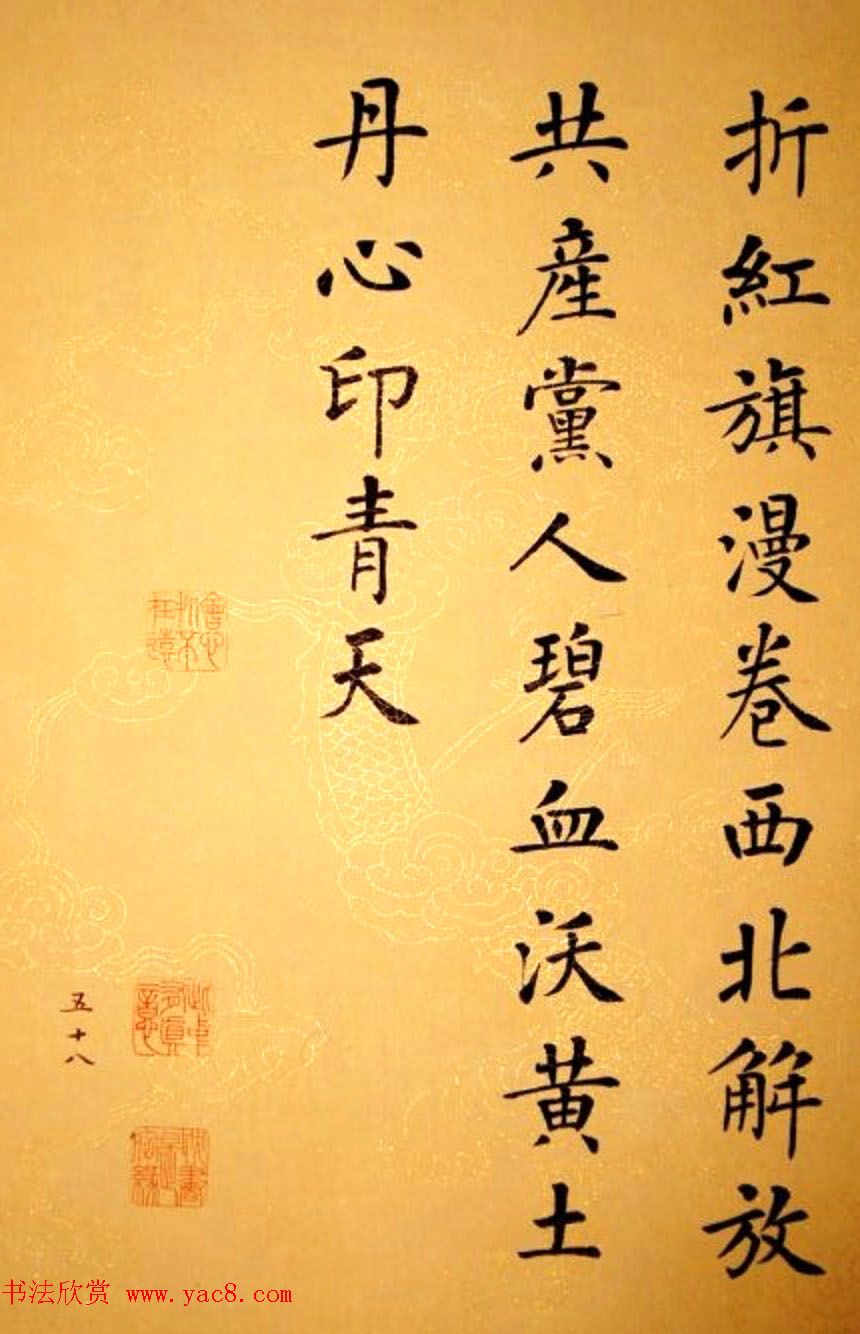 折紅旗漫卷西北解放
共產黨人碧血沃黄土
丹心印青天
五十八
书法欣赏 www.yac8.com